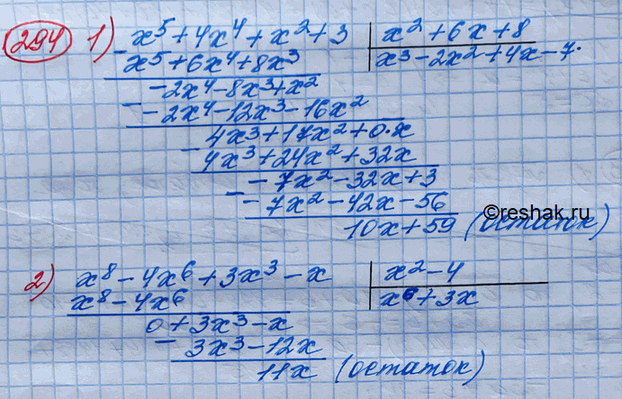 294 1) x⁵+4x⁴+x²+3 | x²+6x+8
x⁵+6x⁴+8x³ | x³-2x²+4x-7.
-2x⁴-8x³+x²
-2x⁴-12x³-16x²
4x³+17x²+0·x
4x³+24x²+32x
-7x²-32x+3
-7x²-42x-56
10x+59 (остаток)
©reshak.ru
2) x⁸-4x⁶+3x³-x | x²-4
x⁸-4x⁶ | x⁶+3x
0+3x³-x
3x³-12x
11x (остаток)